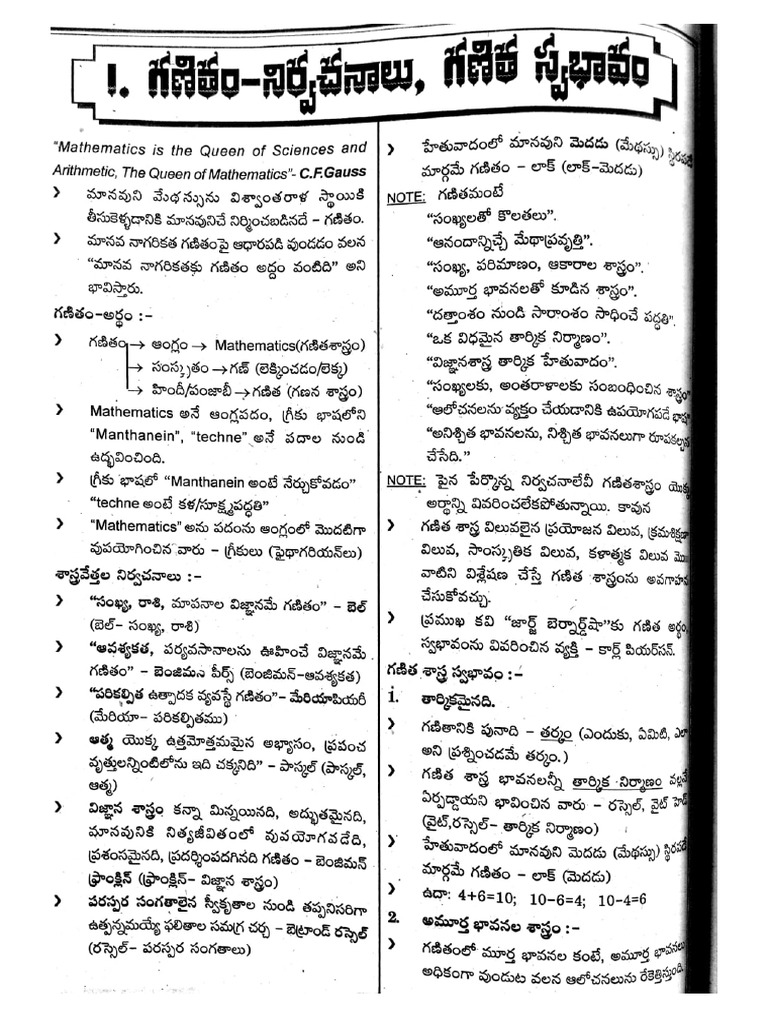 1. గణితం-నిర్వచనాలు, గణిత స్వభావం
"Mathematics is the Queen of Sciences and
Arithmetic, The Queen of Mathematics"- C.F.Gauss
❯ మానవుని మేథస్సును విశ్వాంతరాళ స్థాయికి
తీసుకెళ్ళడానికి మానవునిచే నిర్మించబడినదే – గణితం.
❯ మానవ నాగరికత గణితంపై ఆధారపడి వుండడం వలన
"మానవ నాగరికతకు గణితం అద్దం వంటిది" అని
భావిస్తారు.
గణితం-అర్థం :-
❯ గణితం → ఆంగ్లం → Mathematics(గణితశాస్త్రం)
→ సంస్కృతం →గణ్ (లెక్కించడం/లెక్క)
→ హిందీ/పంజాబీ →గణిత (గణన శాస్త్రం)
❯ Mathematics అనే ఆంగ్లపదం, గ్రీకు భాషలోని
"Manthanein", "techne" అనే పదాల నుండి
ఉద్భవించింది.
❯ గ్రీకు భాషలో "Manthanein అంటే నేర్చుకోవడం"
"techne అంటే కళ/సూక్ష్మపద్ధతి"
❯ "Mathematics" అను పదంను ఆంగ్లంలో మొదటిగా
వుపయోగించిన వారు – గ్రీకులు (పైథాగరియన్‌లు)
శాస్త్రవేత్తల నిర్వచనాలు :-
❯ "సంఖ్య, రాశి, మాపనాల విజ్ఞానమే గణితం" – బెల్
(బెల్– సంఖ్య, రాశి)
❯ "ఆవశ్యకత, పర్యవసానాలను ఊహించే విజ్ఞానమే
గణితం" – బెంజిమన్ పీర్స్ (బెంజిమన్-ఆవశ్యకత)
❯ "పరికల్పిత ఉత్పాదక వ్యవస్థే గణితం"– మేరియాపియరీ
(మేరియా– పరికల్పితము)
❯ ఆత్మ యొక్క ఉత్తమోత్తమమైన అభ్యాసం, ప్రపంచ
వృత్తులన్నింటిలోను ఇది చక్కనిది" – పాస్కల్ (పాస్కల్,
ఆత్మ)
❯ విజ్ఞాన శాస్త్రం కన్నా మిన్నయినది, అద్భుతమైనది,
మానవునికి నిత్యజీవితంలో వుపయోగవడేది,
ప్రశంసమైనది, ప్రదర్శింపదగినది గణితం – బెంజిమన్
ఫ్రాంక్లిన్ (ఫ్రాంక్లిన్– విజ్ఞాన శాస్త్రం)
❯ పరస్పర సంగతాలైన స్వీకృతాల నుండి తప్పనిసరిగా
ఉత్పన్నమయ్యే ఫలితాల సమగ్ర చర్చ – బెట్రాండ్ రస్సెల్
(రస్సెల్– పరస్పర సంగతాలు)
❯ హేతువాదంలో మానవుని మెదడు (మేథస్సు) స్థిరపడే
మార్గమే గణితం – లాక్ (లాక్–మెదడు)
NOTE: గణితమంటే
"సంఖ్యలతో కొలతలు".
"ఆనందాన్నిచ్చే మేథాప్రవృత్తి".
"సంఖ్య, పరిమాణం, ఆకారాల శాస్త్రం".
"అమూర్త భావనలతో కూడిన శాస్త్రం".
"దత్తాంశం నుండి సారాంశం సాధించే పద్ధతి".
"ఒక విధమైన తార్కిక నిర్మాణం".
"విజ్ఞానశాస్త్ర తార్కిక హేతువాదం".
"సంఖ్యలకు, అంతరాళాలకు సంబంధించిన శాస్త్రం"
"ఆలోచనలను వ్యక్తం చేయడానికి ఉపయోగపడే భాష"
"అనిశ్చిత భావనలను, నిశ్చిత భావనలుగా రూపకల్పన
చేసేది."
NOTE: పైన పేర్కొన్న నిర్వచనాలేవీ గణితశాస్త్రం యొక్క
అర్థాన్ని వివరించలేకపోతున్నాయి. కావున
❯ గణిత శాస్త్ర విలువలైన ప్రయోజన విలువ, క్రమశిక్షణా
విలువ, సాంస్కృతిక విలువ, కళాత్మక విలువ మొ
వాటిని విశ్లేషణ చేస్తే గణిత శాస్త్రంను అవగాహన
చేసుకోవచ్చు.
❯ ప్రముఖ కవి "జార్జ్ బెర్నార్డ్‌షా"కు గణిత అర్థం,
స్వభావంను వివరించిన వ్యక్తి – కార్ల్ పియర్‌సన్.
గణిత శాస్త్ర స్వభావం :-
1. తార్కికమైనది.
❯ గణితానికి పునాది – తర్కం (ఎందుకు, ఏమిటి, ఎలా
అని ప్రశ్నించడమే తర్కం.)
❯ గణిత శాస్త్ర భావనలన్నీ తార్కిక నిర్మాణం వల్లనే
ఏర్పడ్డాయని భావించిన వారు – రస్సెల్, వైట్ హెడ్
(వైట్,రస్సెల్– తార్కిక నిర్మాణం)
❯ హేతువాదంలో మానవుని మెదడు (మేథస్సు) స్థిరపడే
మార్గమే గణితం – లాక్ (మెదడు)
❯ ఉదా: 4+6=10; 10-6=4; 10-4=6
2. అమూర్త భావనల శాస్త్రం :-
❯ గణితంలో మూర్త భావనల కంటే, అమూర్త భావనలు
అధికంగా వుండుట వలన ఆలోచనలును రేకెత్తిస్తుంది.